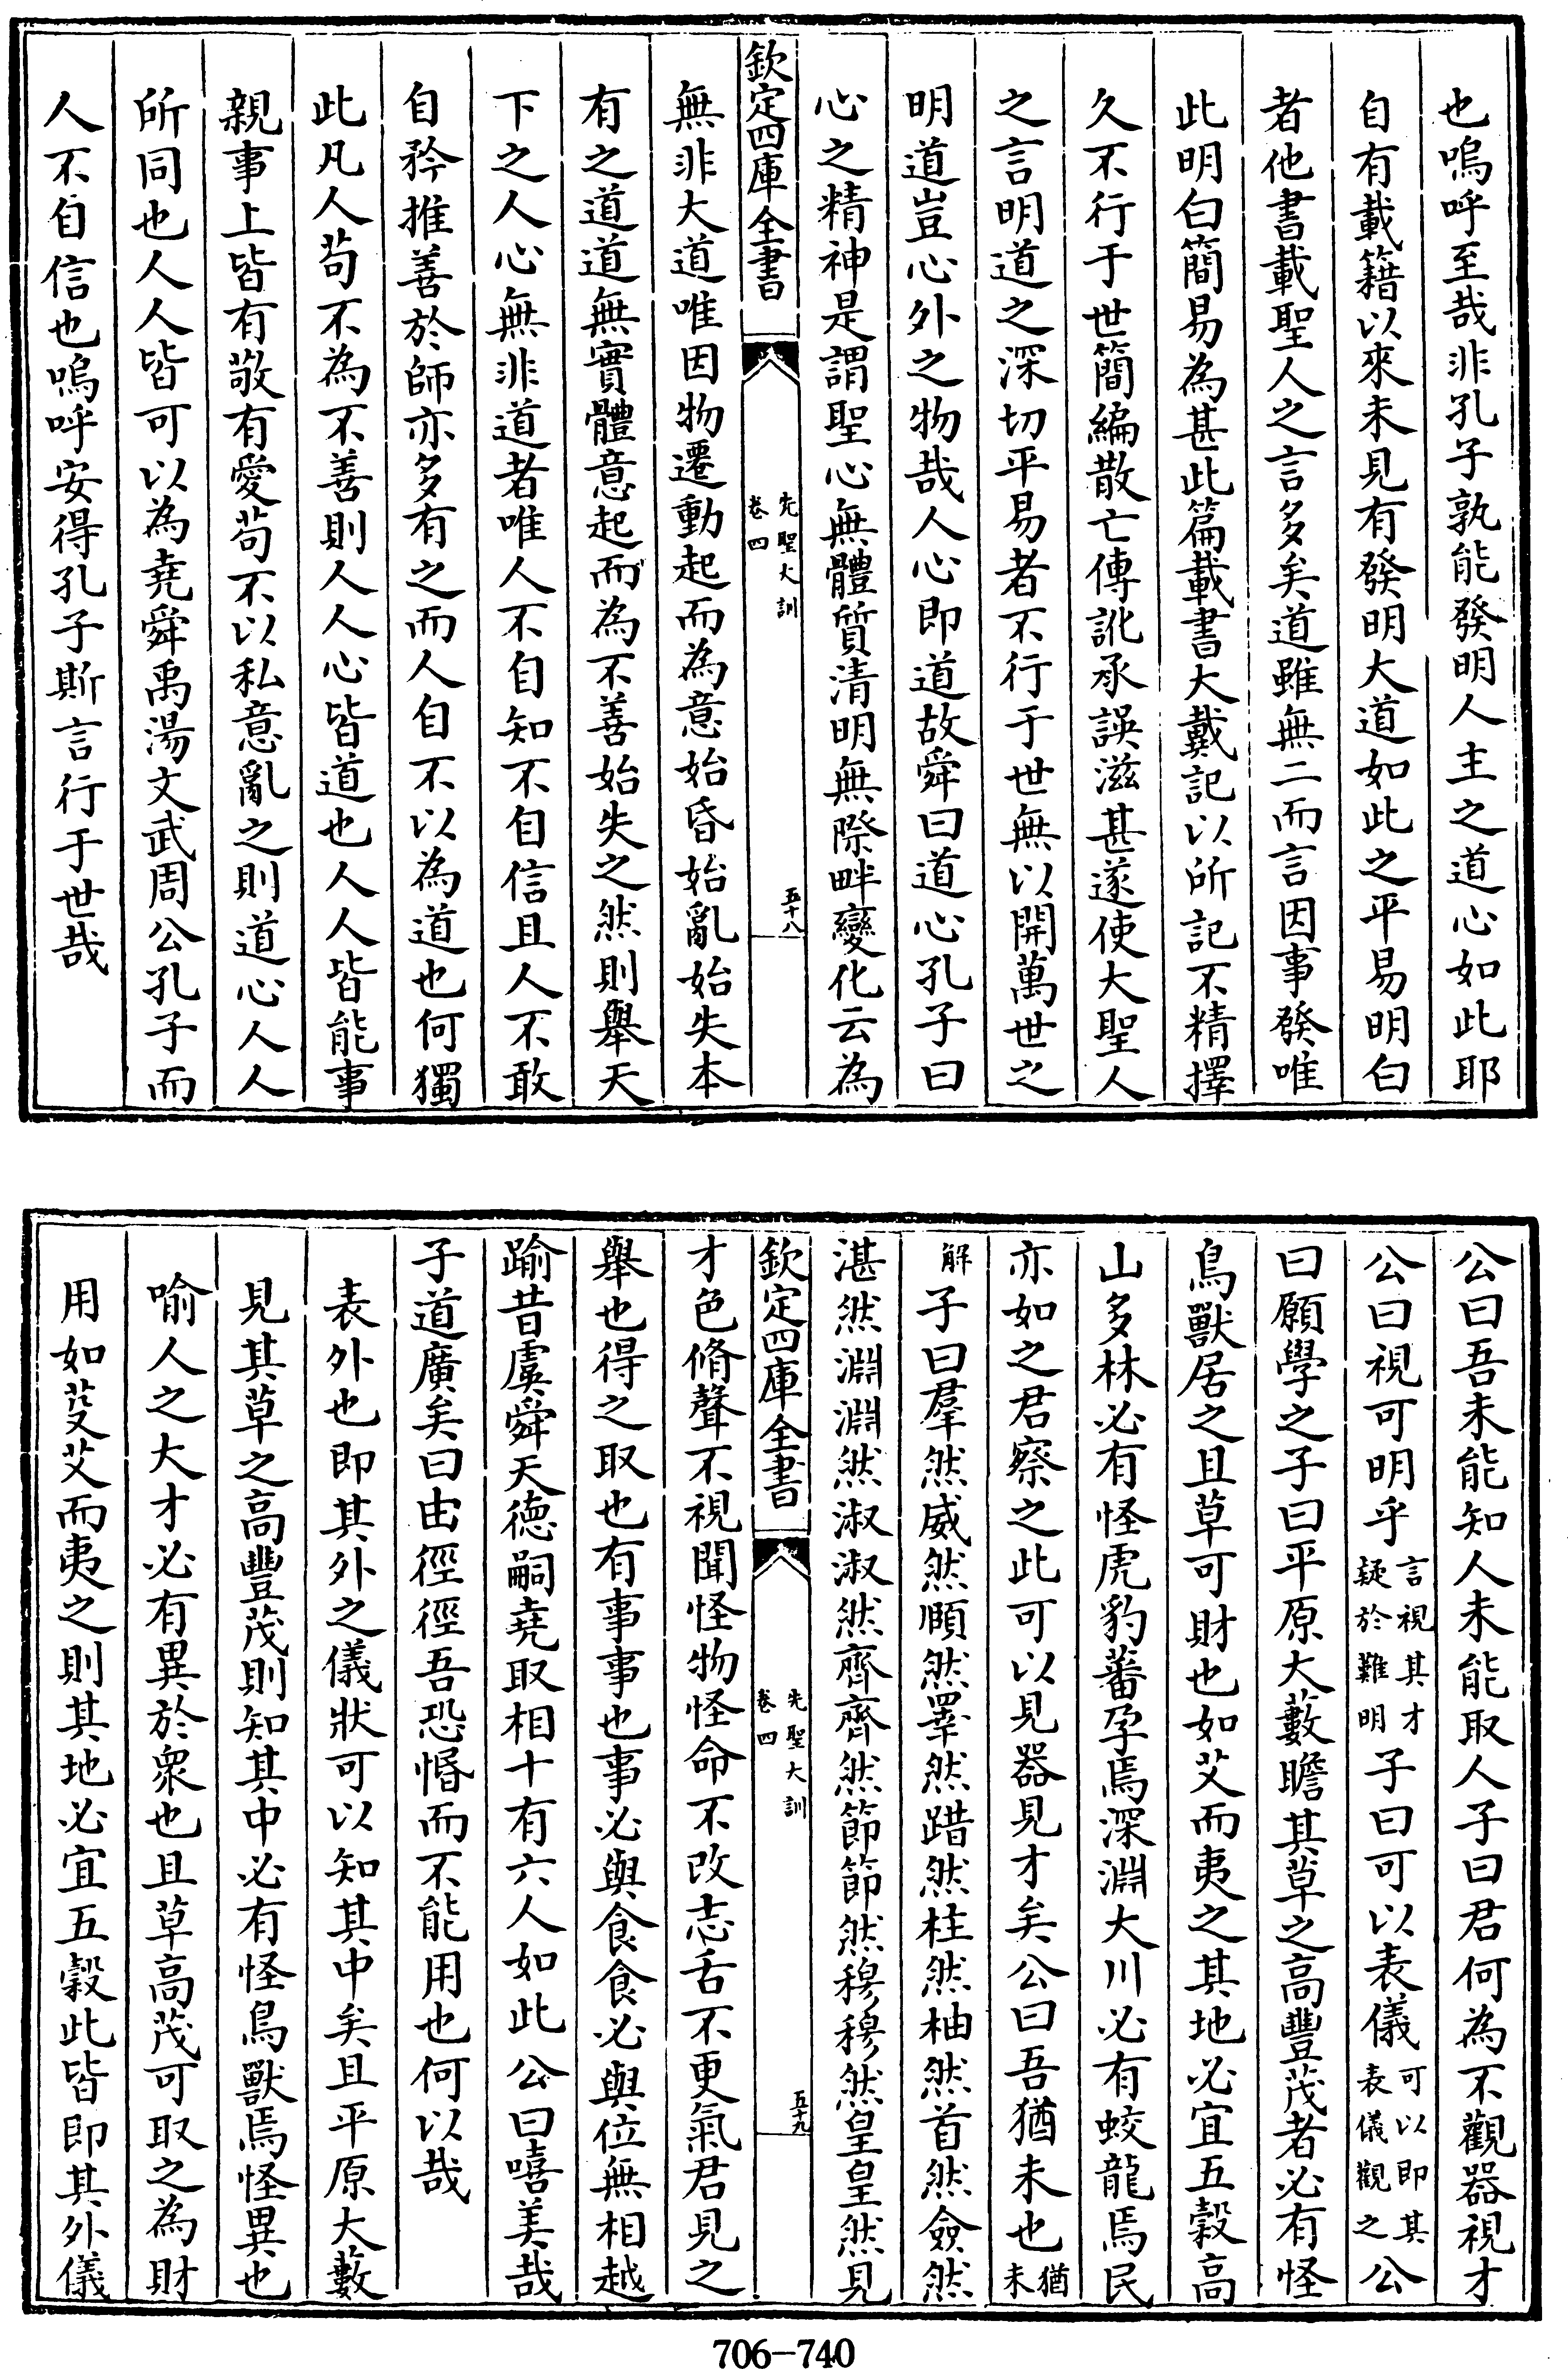 也嗚呼至哉非孔子孰能發明人主之道心如此耶
自有載籍以來未見有發明大道如此之平易明白
者他書載聖人之言多矣道雖無二而言因事發唯
此明白簡易為甚此篇載書大戴記以所記不精擇
久不行于世簡編散亡傳訛承誤滋甚遂使大聖人
之言明道之深切平易者不行于世無以開萬世之
明道豈心外之物哉人心即道故舜曰道心孔子曰
心之精神是謂聖心無體質清明無際畔變化云為
欽定四庫全書
先聖大訓
卷四
五十八
無非大道唯因物遷動起而為意始昏始亂始失本
有之道道無實體意起而為不善始失之然則舉天
下之人心無非道者唯人不自知不自信且人不敢
自矜推善於師亦多有之而人自不以為道也何獨
此凡人苟不為不善則人人心皆道也人人皆能事
親事上皆有敬有愛苟不以私意亂之則道心人人
所同也人人皆可以為堯舜禹湯文武周公孔子而
人不自信也嗚呼安得孔子斯言行于世哉
公曰吾未能知人未能取人子曰君何為不觀器視才
公曰視可明乎言視其才疑於難明子曰可以表儀可以即其表儀觀之公
曰願學之子曰平原大藪瞻其草之高豐茂者必有怪
鳥獸居之且草可財也如艾而夷之其地必宜五穀高
山多林必有怪虎豹蕃孕焉深淵大川必有蛟龍焉民
亦如之君察之此可以見器見才矣公曰吾猶未也猶未
解子曰羣然威然頤然睪然踖然柱然柚然首然僉然
湛然淵淵然淑淑然齊齊然節節然穆穆然皇皇然見
欽定四庫全書
先聖大訓
卷四
五十九
才色脩聲不視聞怪物怪命不改志舌不更氣君見之
舉也得之取也有事事也事必與食食必與位無相越
踰昔虞舜天德嗣堯取相十有六人如此公曰嘻美哉
子道廣矣曰由徑徑吾恐惛而不能用也何以哉
表外也即其外之儀狀可以知其中矣且平原大藪
見其草之高豐茂則知其中必有怪鳥獸焉怪異也
喻人之大才必有異於衆也且草高茂可取之為財
用如芟艾而夷之則其地必宜五穀此皆即其外儀
706-740